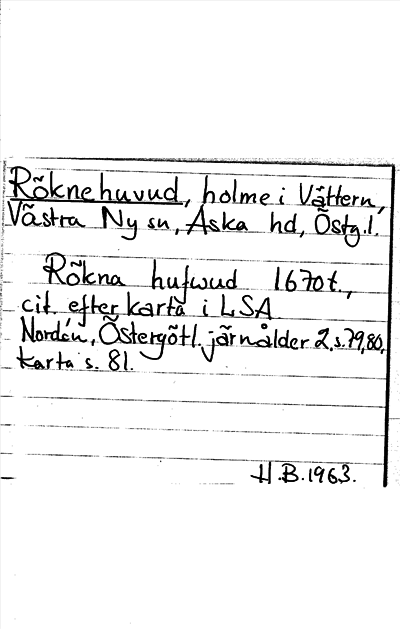 Röknehuvud, holme i Vättern,
Västra Ny sn, Aska hd, Östg.l.
Rökna hufwud 1670t.,
cit. efter karta i LSA.
Nordén, Östergötl. järnålder 2, s. 79, 80,
karta s. 81.
H.B. 1963.